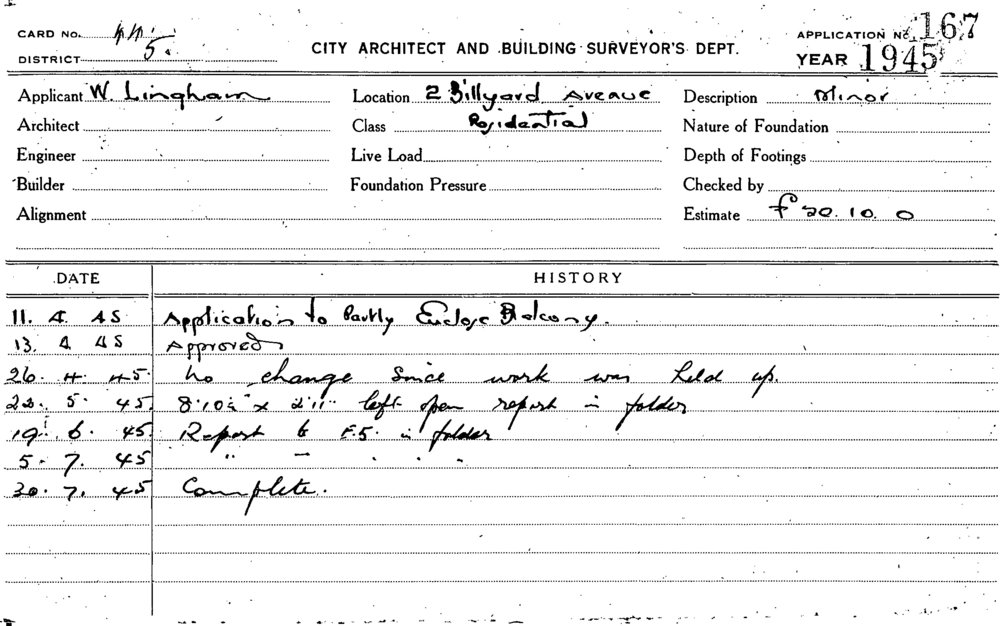 CARD No.
DISTRICT 5.
CITY ARCHITECT AND BUILDING SURVEYOR'S DEPT.
APPLICATION No. 167
YEAR 1945
Applicant W. Lingham
Location 2 Billyard Avenue
Description Minor
Architect
Class Residential
Nature of Foundation
Engineer
Live Load
Depth of Footings
Builder
Foundation Pressure
Checked by
Alignment
Estimate £ 20. 10. 0
DATE HISTORY
11. 4. 45 Application to Partly Enclose Balcony.
13. 4. 45 Approved
26. 4. 45. No change since work was held up.
5. 45. left open report in folder
19. 6. 45. Report to in folder
5. 7. 45 " " " "
30. 7. 45 Complete.